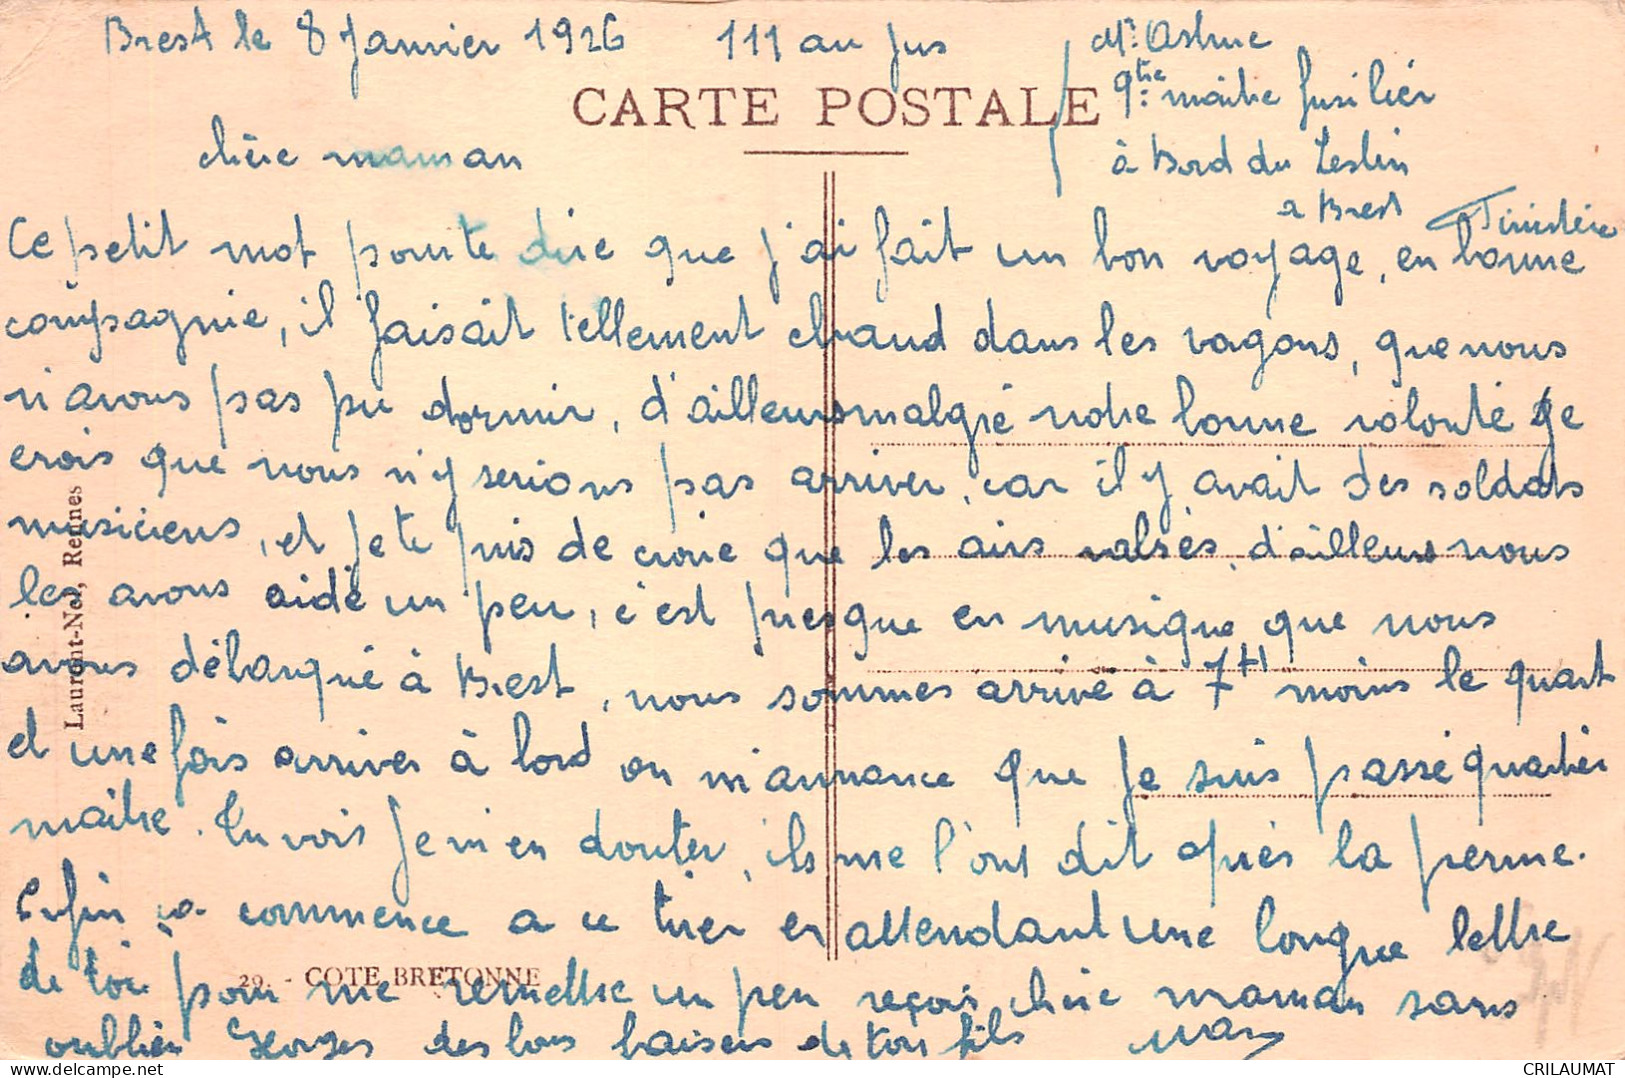 Brest le 8 Janvier 1926 111 au jus
Mr Astruc
qtie maitre fusilier
à Bord du
a Brest Finistère
CARTE POSTALE
chère maman
Ce petit mot pour te dire que j'ai fait un bon voyage, en bonne
compagnie, il faisait tellement chaud dans les vagons, que nous
n'avons pas pu dormir, d'ailleurs malgré notre bonne volonté je
crois que nous n'y serions pas arriver, car il y avait des soldats
musiciens, et je te puis de croire que les airs valsés, d'ailleurs nous
les avons aidé un peu, c'est presque en musique que nous
avons débarqué à Brest, nous sommes arrivé à 7H moins le quart
et une fois arriver à bord on m'annonce que je suis passé quartier
maitre. Tu vois je m'en douter, ils me l'ont dit après la perme.
Enfin ça commence a ce tirer en attendant une longue lettre
de toi pour me remettre un peu reçois chère maman sans
oublier Georges des bons baisers de ton fils
Laurent-Nel, Rennes
29. - COTE BRETONNE
CRILAUMAT